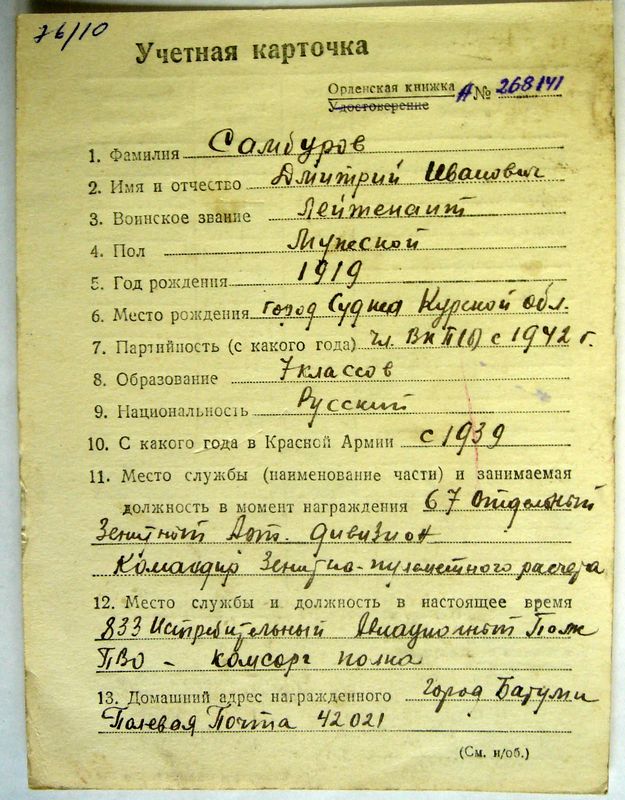 76/10
Учетная карточка
Орденская книжка А № 268141
Удостоверение
1. Фамилия Самбуров
2. Имя и отчество Дмитрий Иванович
3. Воинское звание Лейтенант
4. Пол Мужской
5. Год рождения 1919
6. Место рождения город Суджа Курской обл.
7. Партийность (с какого года) чл. ВКП(б) с 1942 г.
8. Образование 7 классов
9. Национальность Русский
10. С какого года в Красной Армии с 1939
11. Место службы (наименование части) и занимаемая
должность в момент награждения 67 Отдельный
Зенитный Арт. дивизион
Командир Зенитно-пулеметного расчета
12. Место службы и должность в настоящее время
833 Истребительный Авиационный Полк
ПВО – комсорг полка
13. Домашний адрес награжденного город Батуми
Полевая Почта 42021
(См. н/об.)